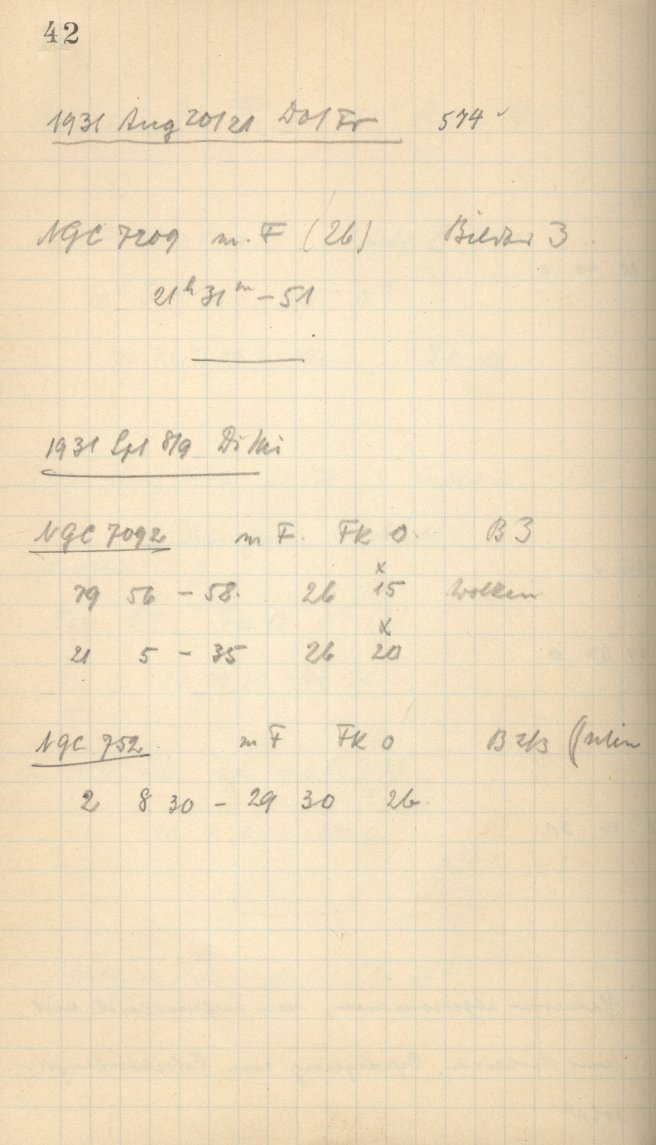 42
1931 Aug 20/21 Do/Fr 574
NGC 7209 m. F (26) Bilder 3
21h 31m - 51
1931 Spt 8/9 Di/Mi
NGC 7092 m F. FK 0. B 3
19 56 - 58. 26 x 15 Wolken
21 5 - 35 26 x 20
NGC 752. m F FK 0 B 2/3
2 8 30 - 29 30 26.